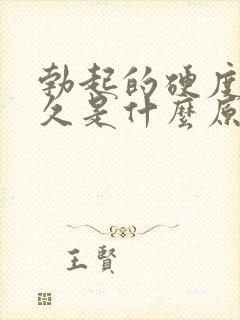 勃起的硬度
久是什麼原
王賢